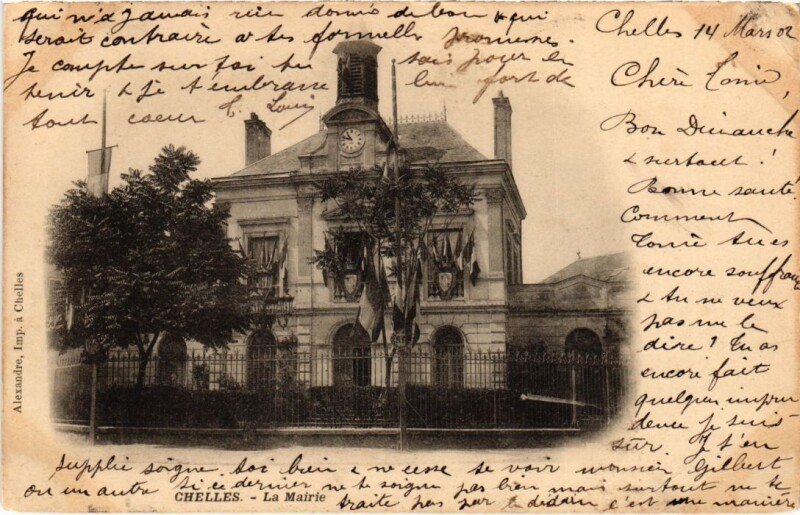 Chelles 14 Mars 02
Chère Tonie,
Bon Dimanche
& surtout !
Bonne santé.
Comment
Tonie tu es
encore souffrante
& tu ne veux
pas me le
dire ? Tu as
encore fait
quelques impru
dence je suis
sûr. Je t'en
supplie soigne toi bien & ne cesse de voir monsieur Gilbert
ou un autre si ce dernier ne te soigne pas bien mais surtout ne te
traite pas par le dédain c'est une manière
qui n'a jamais rien donné de bon & qui
serait contraire à tes formelles promesses.
Je compte sur toi tu sais pour en
tenir & je t'embrasse bien fort de
tout coeur Louis
Alexandre, Imp. à Chelles
CHELLES. - La Mairie